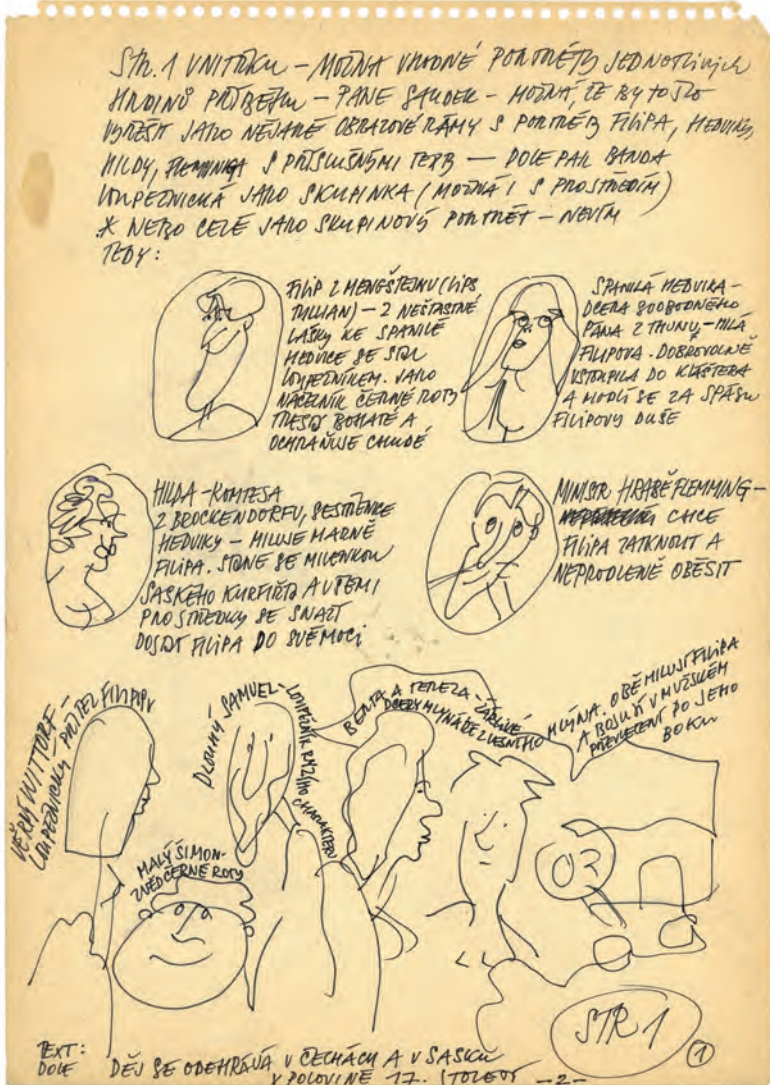 STR. 1 VNITŘKU – MOŽNÁ VHODNÉ PORTRÉTY JEDNOTLIVÝCH
HRDINŮ PŘÍBĚHU – PANE SAUDEK – MOŽNÁ, ŽE BY TO ŠLO
VYŘEŠIT JAKO NĚJAKÉ OBRAZOVÉ RÁMY S PORTRÉTY FILIPA, HEDVIKY,
HILDY, FLEMMINGA S PŘÍSLUŠNÝMI TEXTY — DOLE PAK BANDA
LOUPEŽNICKÁ JAKO SKUPINKA (MOŽNÁ I S PROSTŘEDÍM)
* NEBO CELÉ JAKO SKUPINOVÝ PORTRÉT – NEVÍM
TEDY:
FILIP Z MENGŠTEJNU (LIPS
TULLIAN) – Z NEŠŤASTNÉ
LÁSKY KE SPANILÉ
HEDVICE SE STAL
LOUPEŽNÍKEM. JAKO
NÁČELNÍK ČERNÉ ROTY
TRESTÁ BOHATÉ A
OCHRAŇUJE CHUDÉ
SPANILÁ HEDVIKA –
DCERA SVOBODNÉHO
PÁNA Z THUNU, – MILÁ
FILIPOVA. DOBROVOLNĚ
VSTOUPILA DO KLÁŠTERA
A MODLÍ SE ZA SPÁSU
FILIPOVY DUŠE
HILDA – KOMTESA
Z BROCKENDORFU, SESTŘENICE
HEDVIKY – MILUJE MARNĚ
FILIPA. STANE SE MILENKOU
SASKÉHO KURFIŘTA A VŠEMI
PROSTŘEDKY SE SNAŽÍ
DOSTAT FILIPA DO SVÉ MOCI
MINISTR HRABĚ FLEMMING –
CHCE
FILIPA ZATKNOUT A
NEPRODLENĚ OBĚSIT
VĚRNÝ WITTORF –
LOUPEŽNICKÝ PŘÍTEL FILIPŮV
MALÝ ŠIMON –
ZVĚD ČERNÉ ROTY
DLOUHÝ SAMUEL –
LOUPEŽNÍK RYZÍHO CHARAKTERU
BERTA A TEREZA – ŽÁRLIVÉ
DCERY MLYNÁŘE Z LESNÍHO
MLÝNA. OBĚ MILUJÍ FILIPA
A BOJUJÍ V MUŽSKÉM
PŘEVLEČENÍ PO JEHO
BOKU
STR 1
1
TEXT:
DOLE
DĚJ SE ODEHRÁVÁ V ČECHÁCH A V SASKU
V POLOVINĚ 17. STOLETÍ
–2–